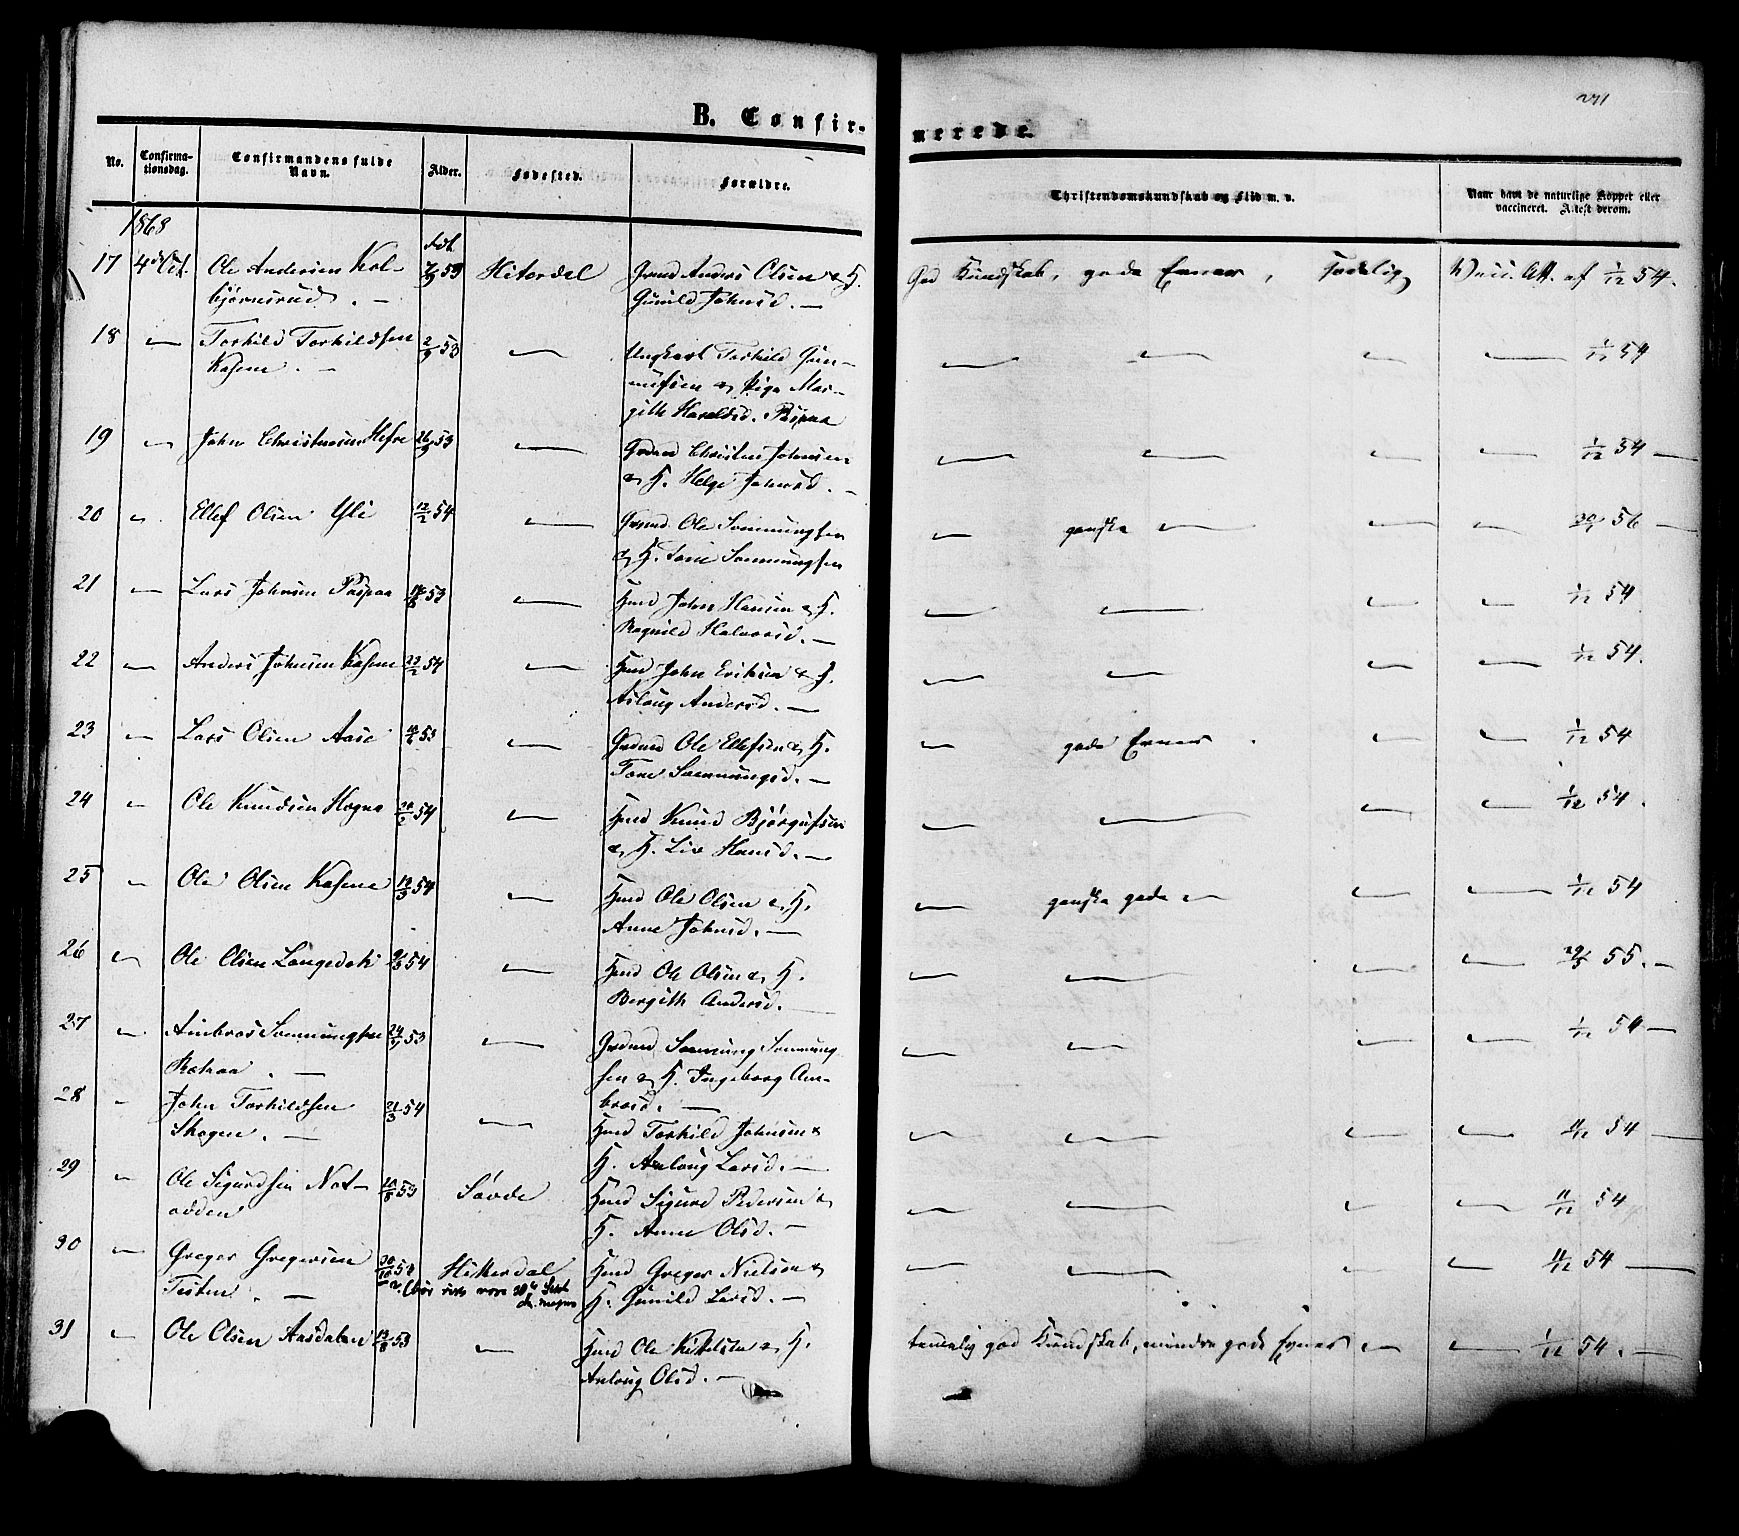 B. Confirmerede.
271
No.
Confirmationsdag.
Confirmandens fulde Navn.
Alder.
Fødested.
Forældre.
Christendomskundskab og Flid m. v.
Naar havt de naturlige Kopper eller vaccineret. Attest derom.
1868
17 4de Oct. Ole Andersen Kolbjørnsrud. — fød. 7/9 53 Hiterdal Grmd Anders Olsen & H. Gunild Johnsd. — God Kundskab, gode Evner, Sædelig Vacc. Att. af 1/12 54.
18 — Torkild Torkildsen Kasene. — 2/9 53 — Ungkarl Torkild Gunnulfsen & Pige Margith Haraldsd. Paspaa — — — — 1/12 54
19 — John Christensen Hefre 26/9 53 — Grdmd Christen Johnsen & H. Helge Johnsd. — — — — — 1/12 54 —
20 — Ellef Olsen Yli 12/2 54 — Grdmd Ole Sommungsen & H. Tone Sommungsen — ganske — — — 56 —
21 — Lars Johnsen Paspaa 53 — Hmd John Hansen & H. Ragnild Halvorsd. — — — — — 1/12 54
22 — Anders Johnsen Kasene 23/2 54 — Hmd John Eriksen & H. Aslaug Andersd. — — — — — 1/12 54.
23 — Lars Olsen Aase 53 — Grdmd Ole Ellefsen & H. Tone Sommungsd. — — gode Evner. — — 1/12 54
24 — Ole Knudsen Hogna 54 — Hmd Knud Bjørgufsen & H. Liv Hansd. — — — — — 1/12 54.
25 — Ole Olsen Kasene 19/3 54 — Hmd Ole Olsen & H. Anne Johnsd. — — ganske gode — — — 1/12 54
26 — Ole Olsen Langedok 54 — Hmd Ole Olsen & H. Bergith Andersd. — — — — — 29/5 55. —
27 — Ambros Sommungsen Rotvaa. — 24/9 53 — Grdmd Sommung Sommungsen & H. Ingeborg Ambrosd. — — — — — 1/12 54 —
28 — John Torkildsen Skogen. — 21/3 54 — Hmd Torkild Johnsen & H. Aslaug Larsd. — — — — — 11/12 54 —
29 — Ole Sigurdsen Notodden 53 Søvde Hmd Sigurd Pedersen & H. Anne Olsd. — — — — — 11/12 54
30 — Greger Gregersen Tisten. — 30/10 Hitterdal Hmd Greger Nielsen & H. Gunild Larsd. — — — — — 11/12 54 —
31 — Ole Olsen Aasdalen 53 — Hmd Ole Kittelsen & H. Aslaug Olsd. — temmelig god Kundskab, mindre gode Evner — — 1/12 54. —